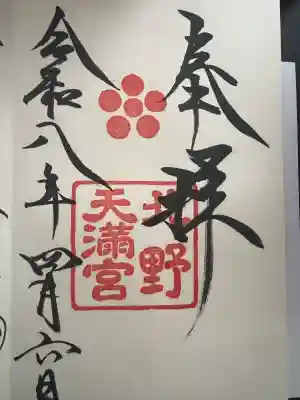 奉拝
北野
天満宮
令和八年四月六日